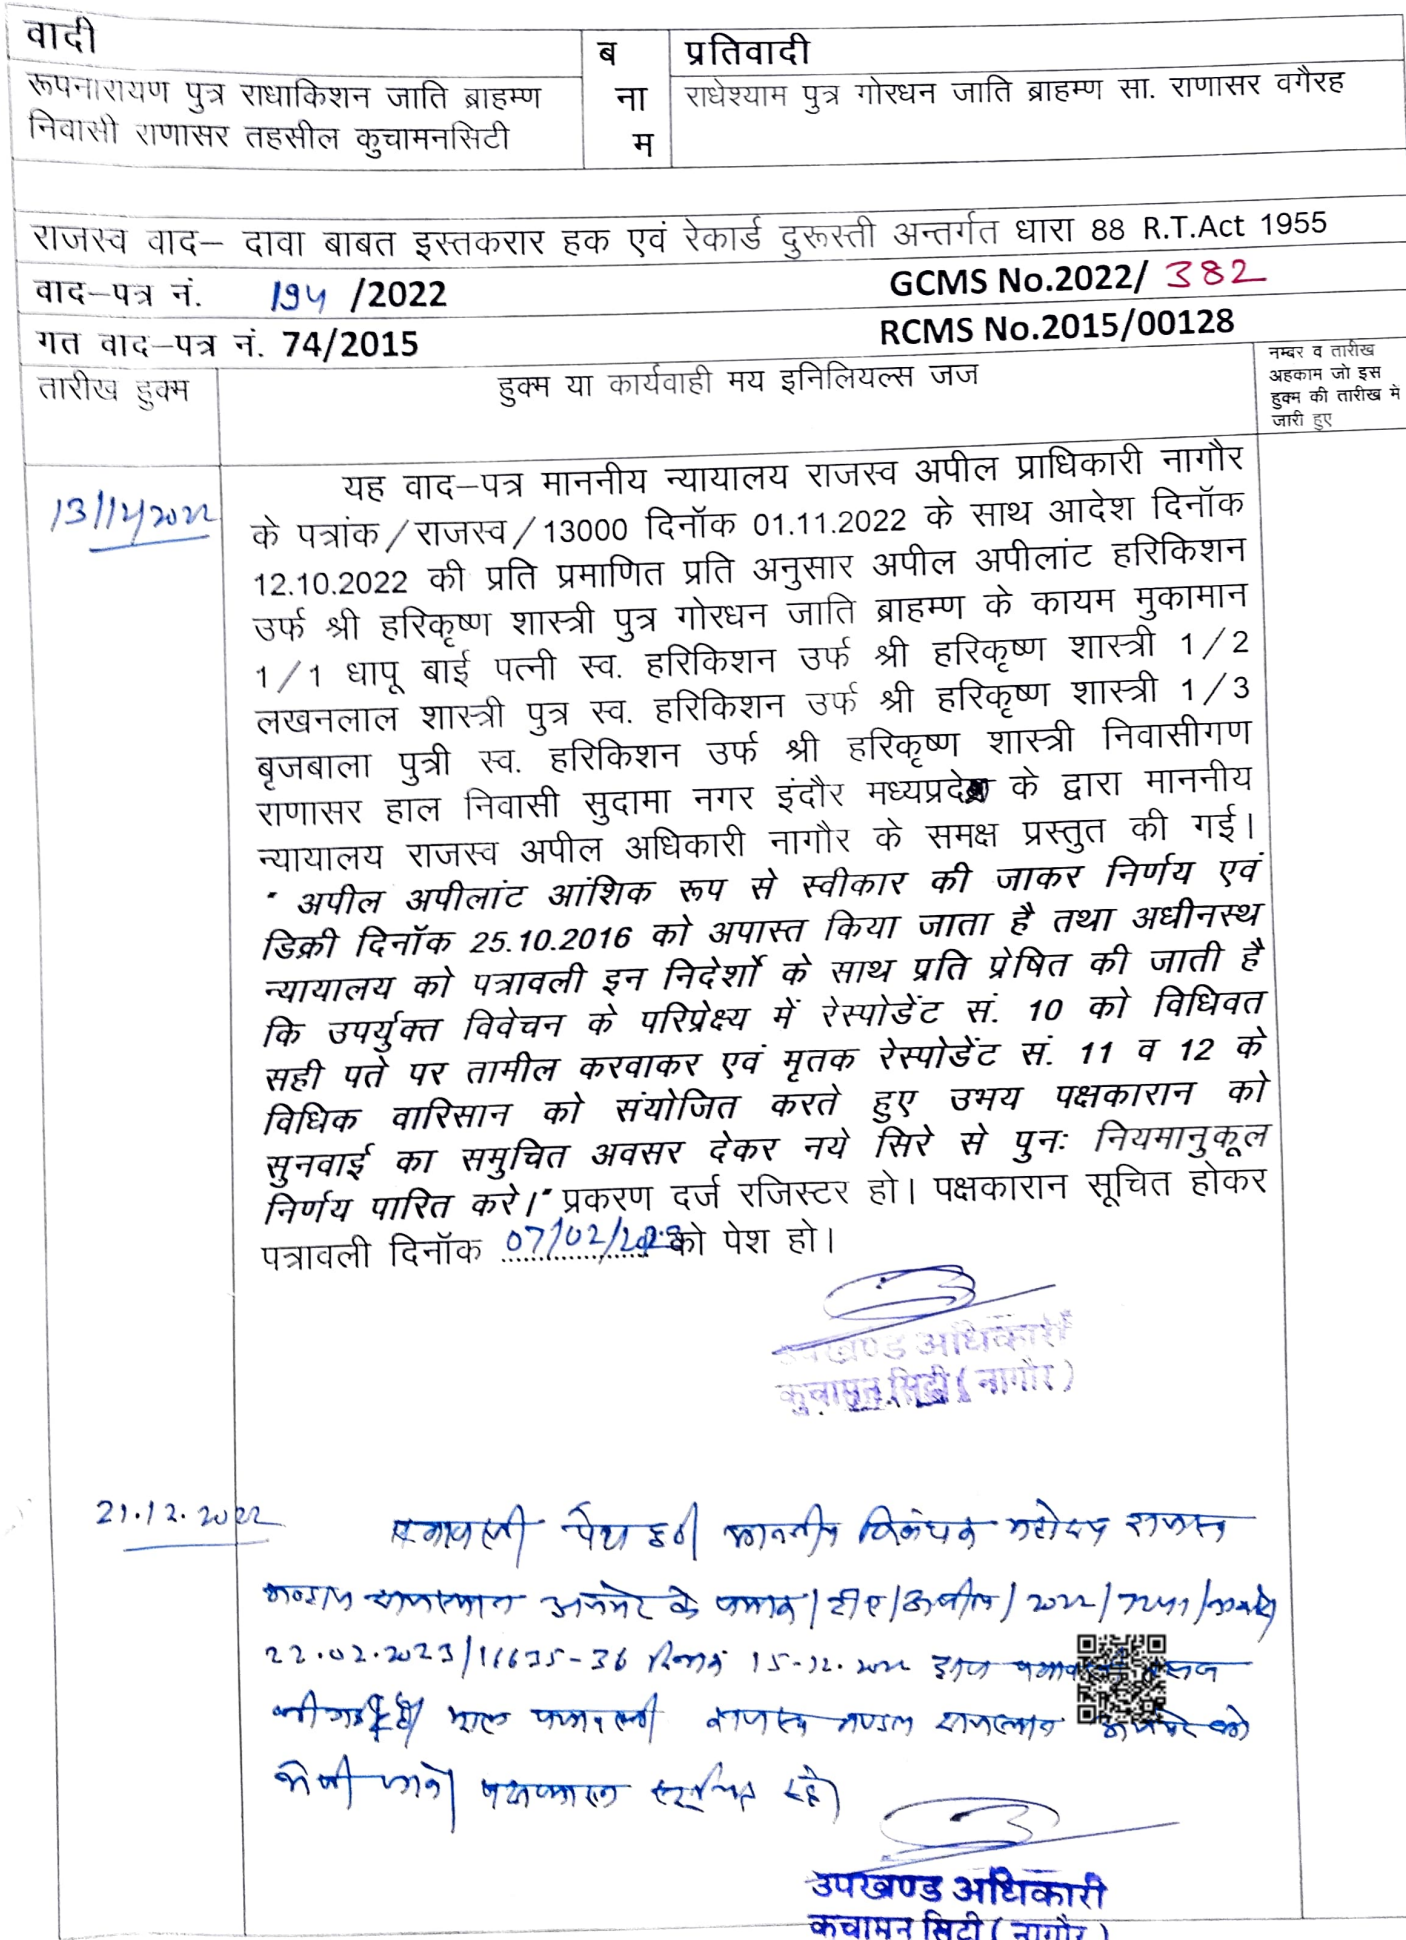 वादी
ब
ना
म
प्रतिवादी
रूपनारायण पुत्र राधाकिशन जाति ब्राहम्ण
निवासी राणासर तहसील कुचामनसिटी
राधेश्याम पुत्र गोरधन जाति ब्राहम्ण सा. राणासर वगैरह
राजस्व वाद– दावा बाबत इस्तकरार हक एवं रेकार्ड दुरूस्ती अन्तर्गत धारा 88 R.T.Act 1955
वाद–पत्र नं. 194 /2022 GCMS No.2022/ 382
गत वाद–पत्र नं. 74/2015 RCMS No.2015/00128
तारीख हुक्म
हुक्म या कार्यवाही मय इनिलियल्स जज
नम्बर व तारीख
अहकाम जो इस
हुक्म की तारीख में
जारी हुए
13/12/2022
यह वाद–पत्र माननीय न्यायालय राजस्व अपील प्राधिकारी नागौर
के पत्रांक/राजस्व/13000 दिनॉक 01.11.2022 के साथ आदेश दिनॉक
12.10.2022 की प्रति प्रमाणित प्रति अनुसार अपील अपीलांट हरिकिशन
उर्फ श्री हरिकृष्ण शास्त्री पुत्र गोरधन जाति ब्राहम्ण के कायम मुकामान
1/1 धापू बाई पत्नी स्व. हरिकिशन उर्फ श्री हरिकृष्ण शास्त्री 1/2
लखनलाल शास्त्री पुत्र स्व. हरिकिशन उर्फ श्री हरिकृष्ण शास्त्री 1/3
बृजबाला पुत्री स्व. हरिकिशन उर्फ श्री हरिकृष्ण शास्त्री निवासीगण
राणासर हाल निवासी सुदामा नगर इंदौर मध्यप्रदेश के द्वारा माननीय
न्यायालय राजस्व अपील अधिकारी नागौर के समक्ष प्रस्तुत की गई।
" अपील अपीलांट आंशिक रूप से स्वीकार की जाकर निर्णय एवं
डिक्री दिनॉक 25.10.2016 को अपास्त किया जाता है तथा अधीनस्थ
न्यायालय को पत्रावली इन निदेर्शो के साथ प्रति प्रेषित की जाती है
कि उपर्युक्त विवेचन के परिप्रेक्ष्य में रेस्पोडेंट सं. 10 को विधिवत
सही पते पर तामील करवाकर एवं मृतक रेस्पोडेंट सं. 11 व 12 के
विधिक वारिसान को संयोजित करते हुए उभय पक्षकारान को
सुनवाई का समुचित अवसर देकर नये सिरे से पुनः नियमानुकूल
निर्णय पारित करे।" प्रकरण दर्ज रजिस्टर हो। पक्षकारान सूचित होकर
पत्रावली दिनॉक 07/02/2023 को पेश हो।
उपखण्ड अधिकारी
कुचामन सिटी ( नागौर )
21.12.2022
पत्रावली पेश हुई। माननीय निबंधक महोदय राजस्व
मण्डल राजस्थान अजमेर के पत्रांक/टीए/अपील/2022/7241/नागौर/
22.02.2023/11635-36 दिनांक 15-12-2022 द्वारा पत्रावली तलब
की गई है। मूल पत्रावली राजस्व मण्डल राजस्थान अजमेर को
भेजी जावे। पक्षकारान सूचित रहे।
उपखण्ड अधिकारी
कुचामन सिटी ( नागौर )